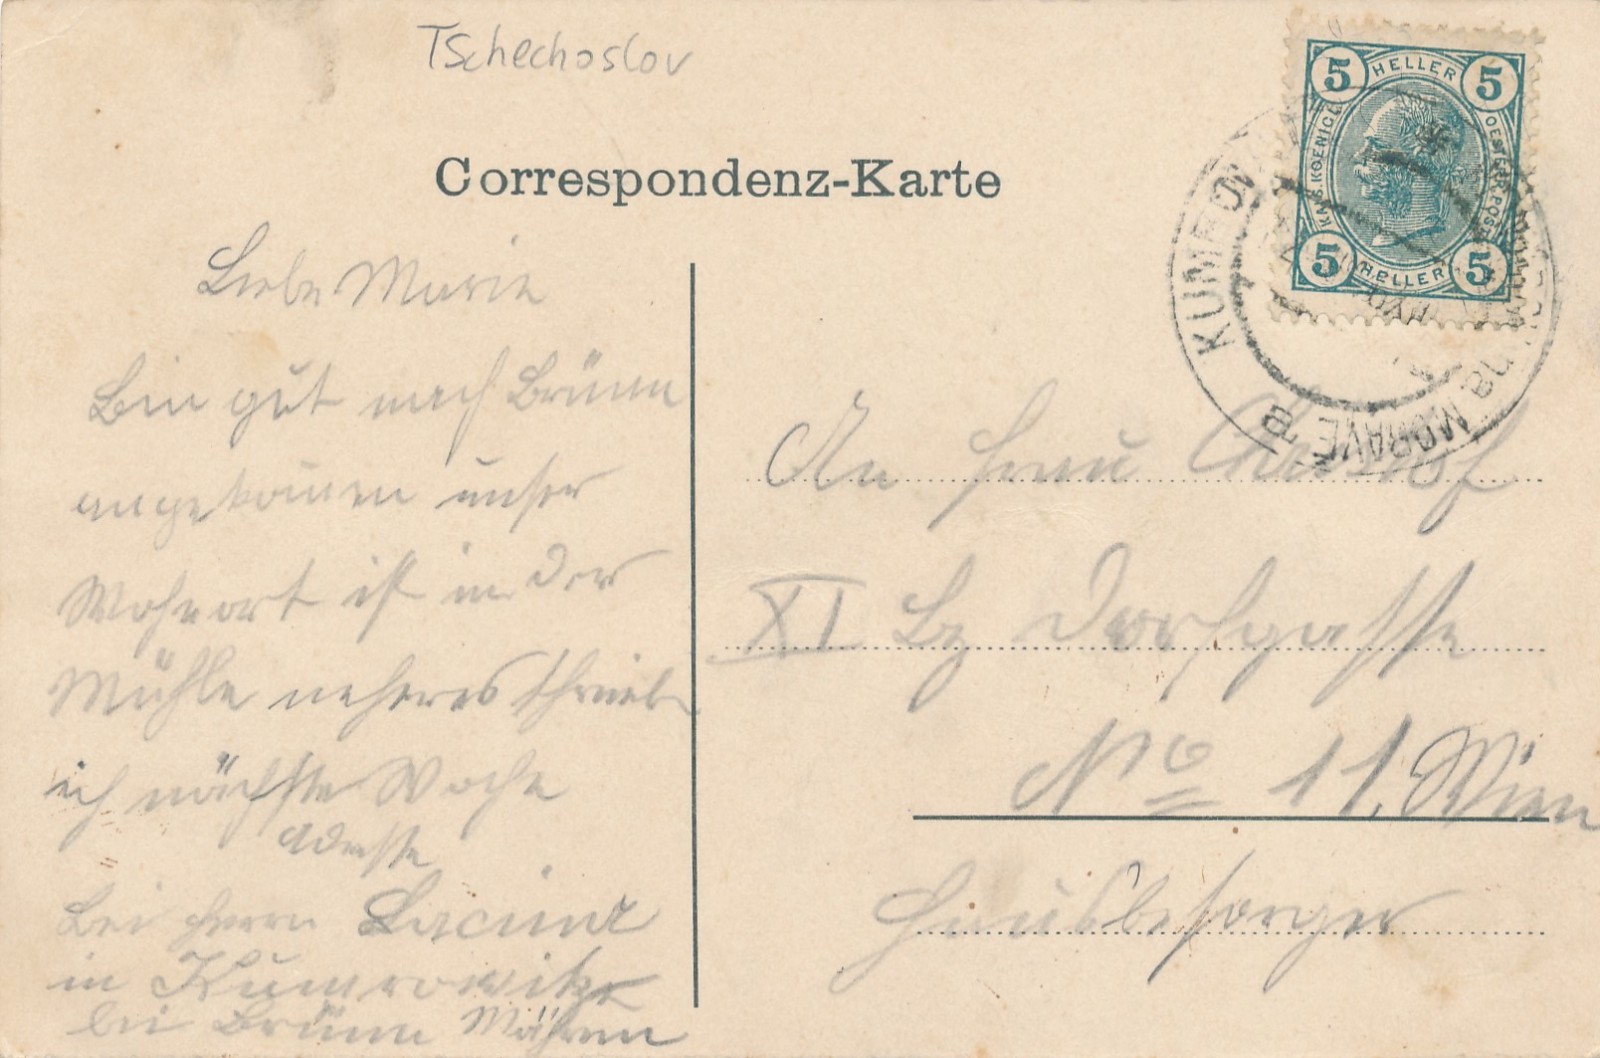 Tschechoslov
Correspondenz-Karte
5 HELLER 5
KAIS. KOENIGL.
OESTERR. POST
5 HELLER 5
KUMROW
na MORAVĚ
Liebe Marie
Bin gut nach Brünn
angekomen unser
Wohnort ist in der
Mühle neheres schreibe
ich nächste Woche
Adresse
Bei Herrn Lacina
in Kumrowitz
bei Brünn Mähren
An Frau Christof
XI Bz Dorfgasse
No 11, Wien
Hausbesorger